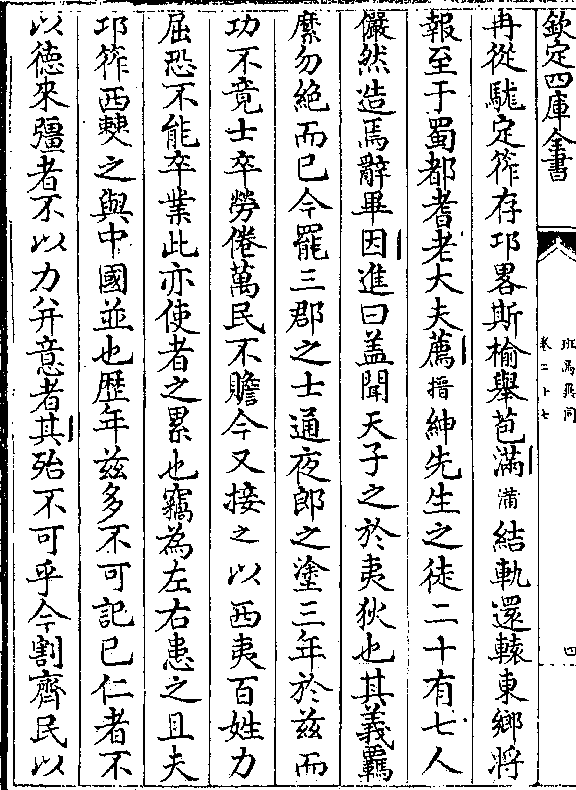 欽定四庫全書
班馬異同
卷二十七
四
冉從駹定筰存邛畧斯榆舉苞滿蒲結軌還轅東鄉將
報至于蜀都耆老大夫薦搢紳先生之徒二十有七人
儼然造焉辭畢因進曰盖聞天子之於夷狄也其義羈
縻勿絶而已今罷三郡之士通夜郎之塗三年於兹而
功不竟士卒勞倦萬民不贍今又接之以西夷百姓力
屈恐不能卒業此亦使者之累也竊為左右患之且夫
邛筰西僰之與中國並也歴年兹多不可記已仁者不
以德來彊者不以力并意者其殆不可乎今割齊民以